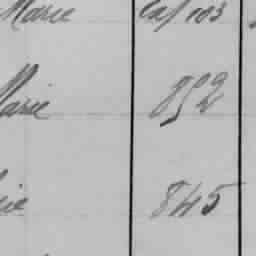 Marie 103
Marie 852
845